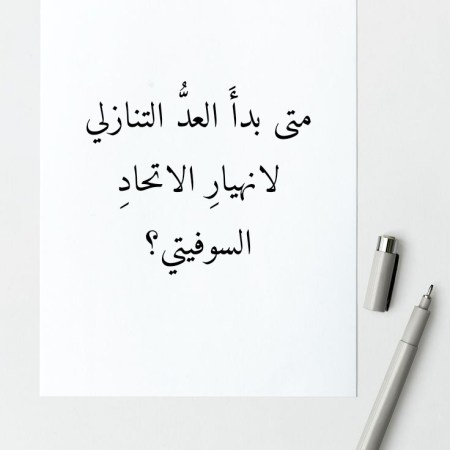 متى بدأَ العدُّ التنازلي
لانهيارِ الاتحادِ
السوفيتي؟